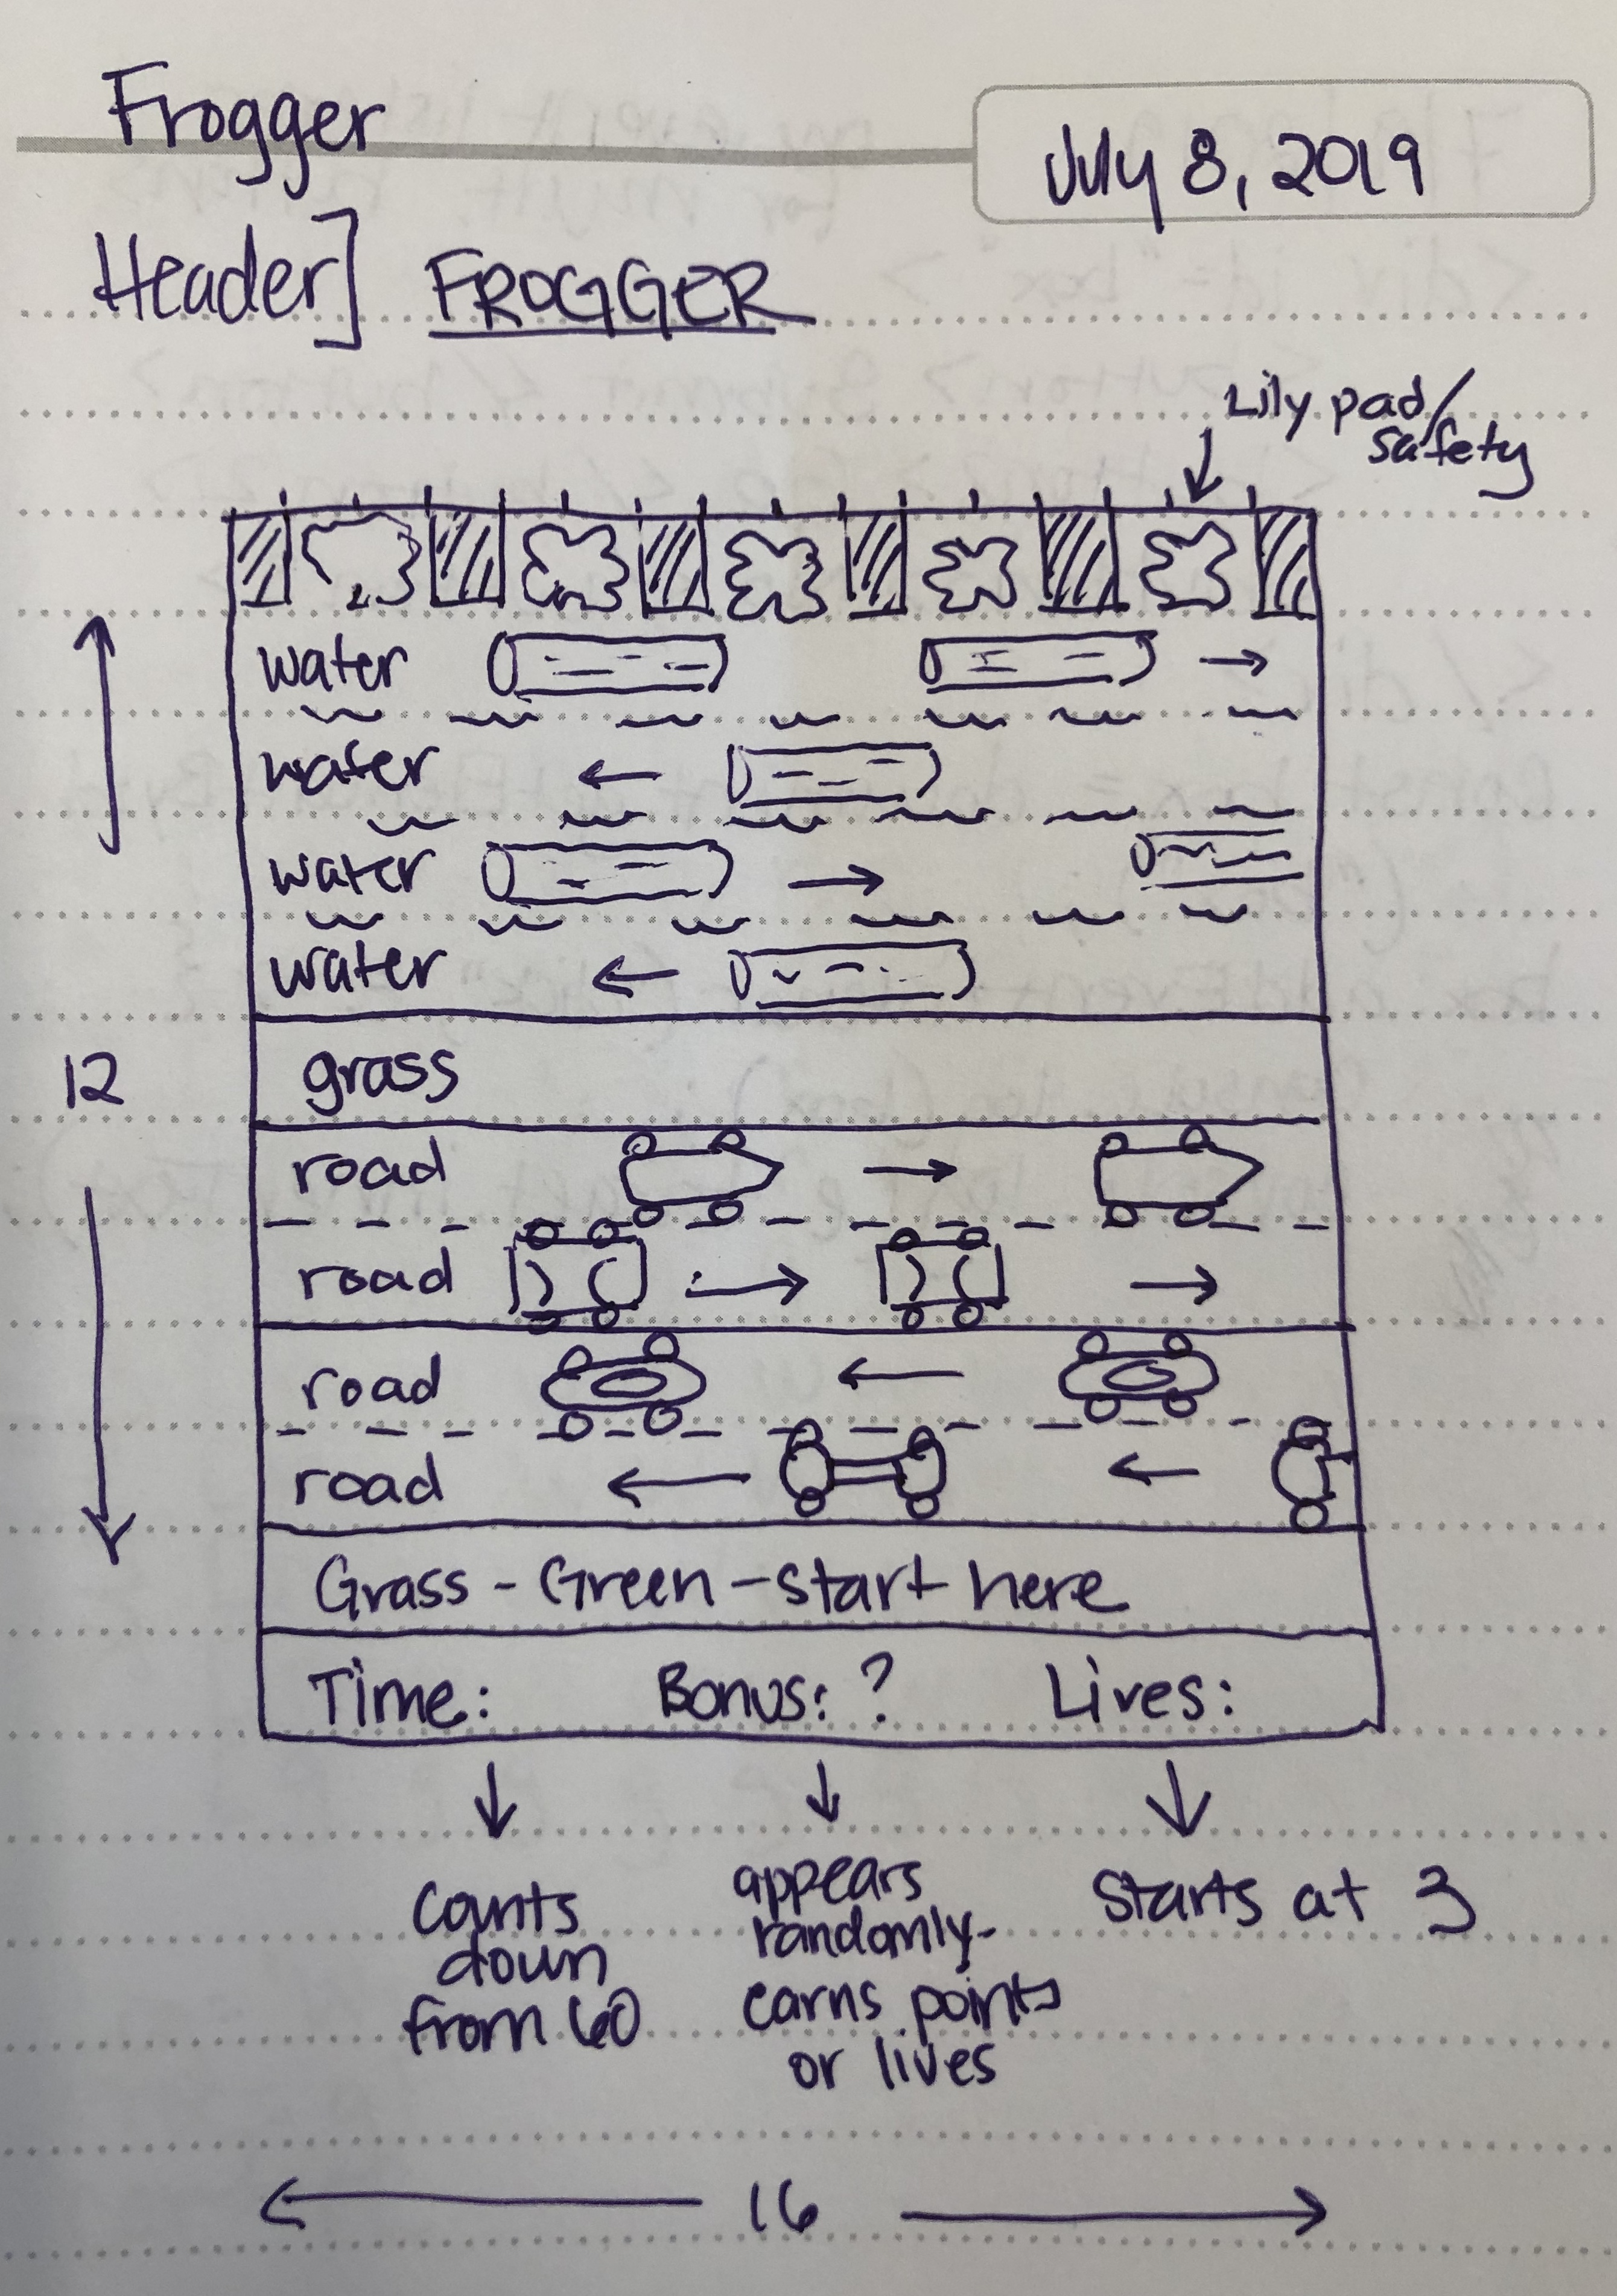 Frogger
July 8, 2019
Header] FROGGER
Lily pad/
safety
water
water
water
water
12
grass
road
road
road
road
Grass - Green - start here
Time: Bonus: ? Lives:
Counts
down
from 60
appears
randomly-
earns points
or lives
Starts at 3
16